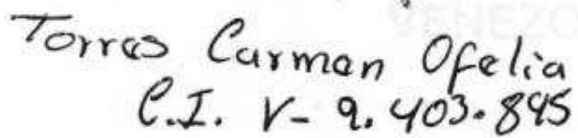 Torres Carmen Ofelia
C.I. V- 9.403.895